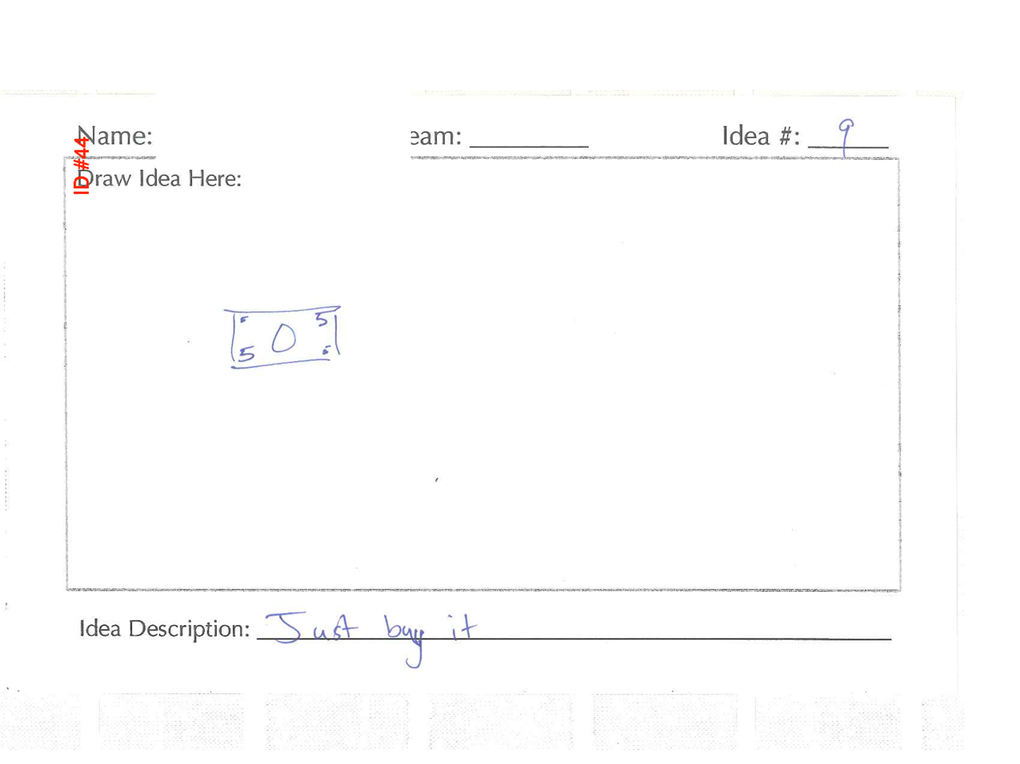 Name: eam: Idea #: 9
ID #44
Draw Idea Here:
5
5
Idea Description: Just buy it